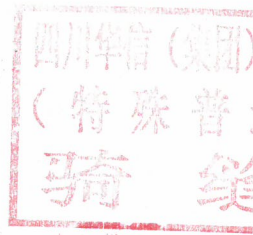 四川华信（集团）
（特殊普
骑 缝